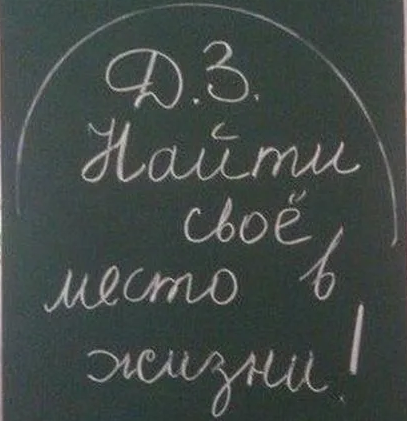 Д.З.
Найти
своё
место в
жизни!